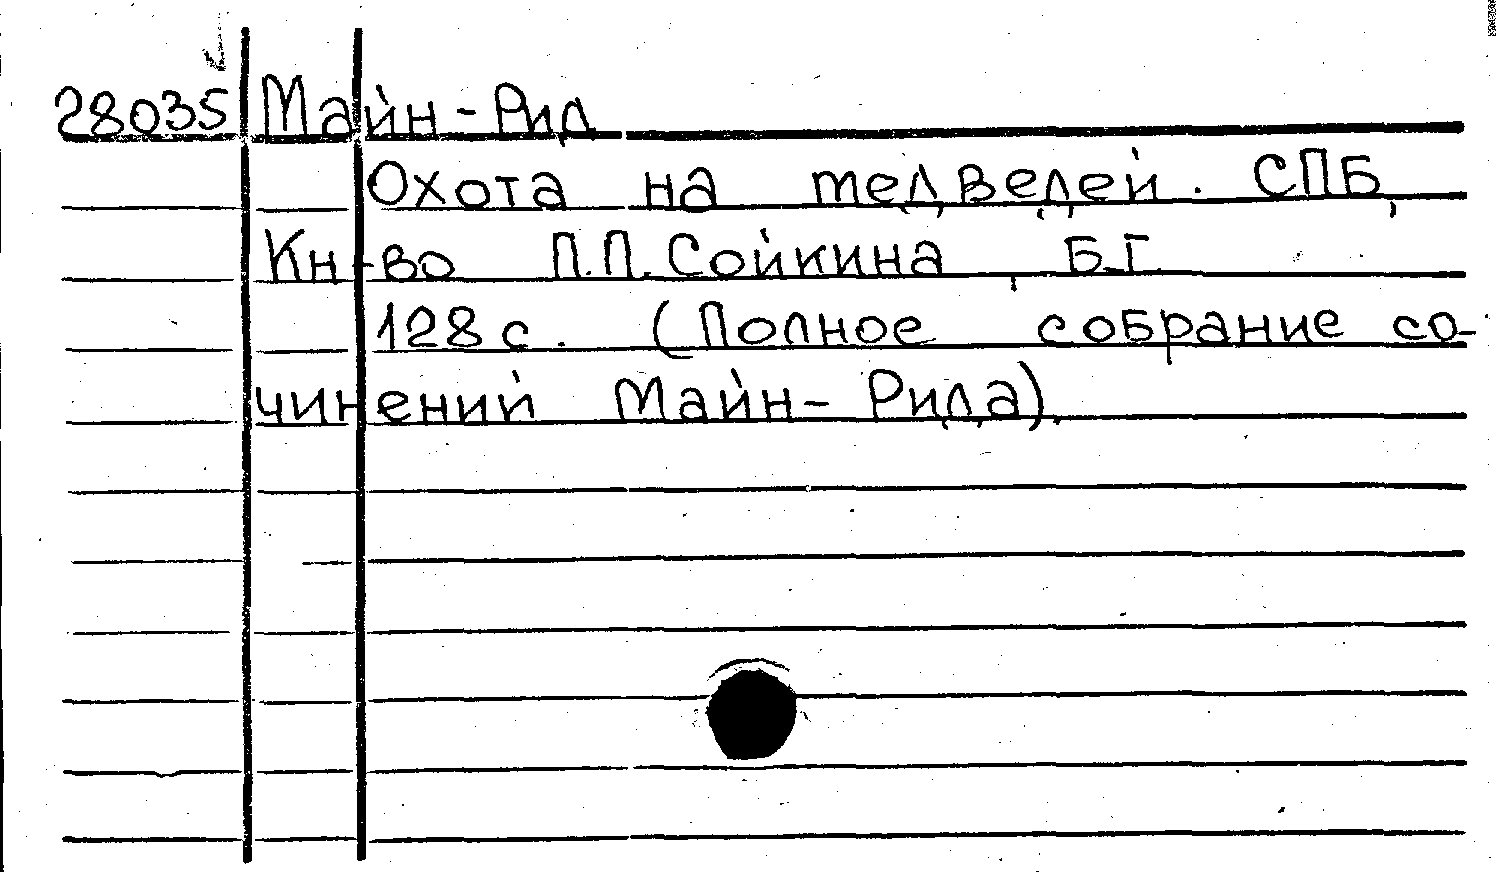 28035 Майн-Рид
Охота на медведей. СПБ,
Кн-во П.П.Сойкина, Б.Г.
128 с. (Полное собрание со-
чинений Майн-Рида).